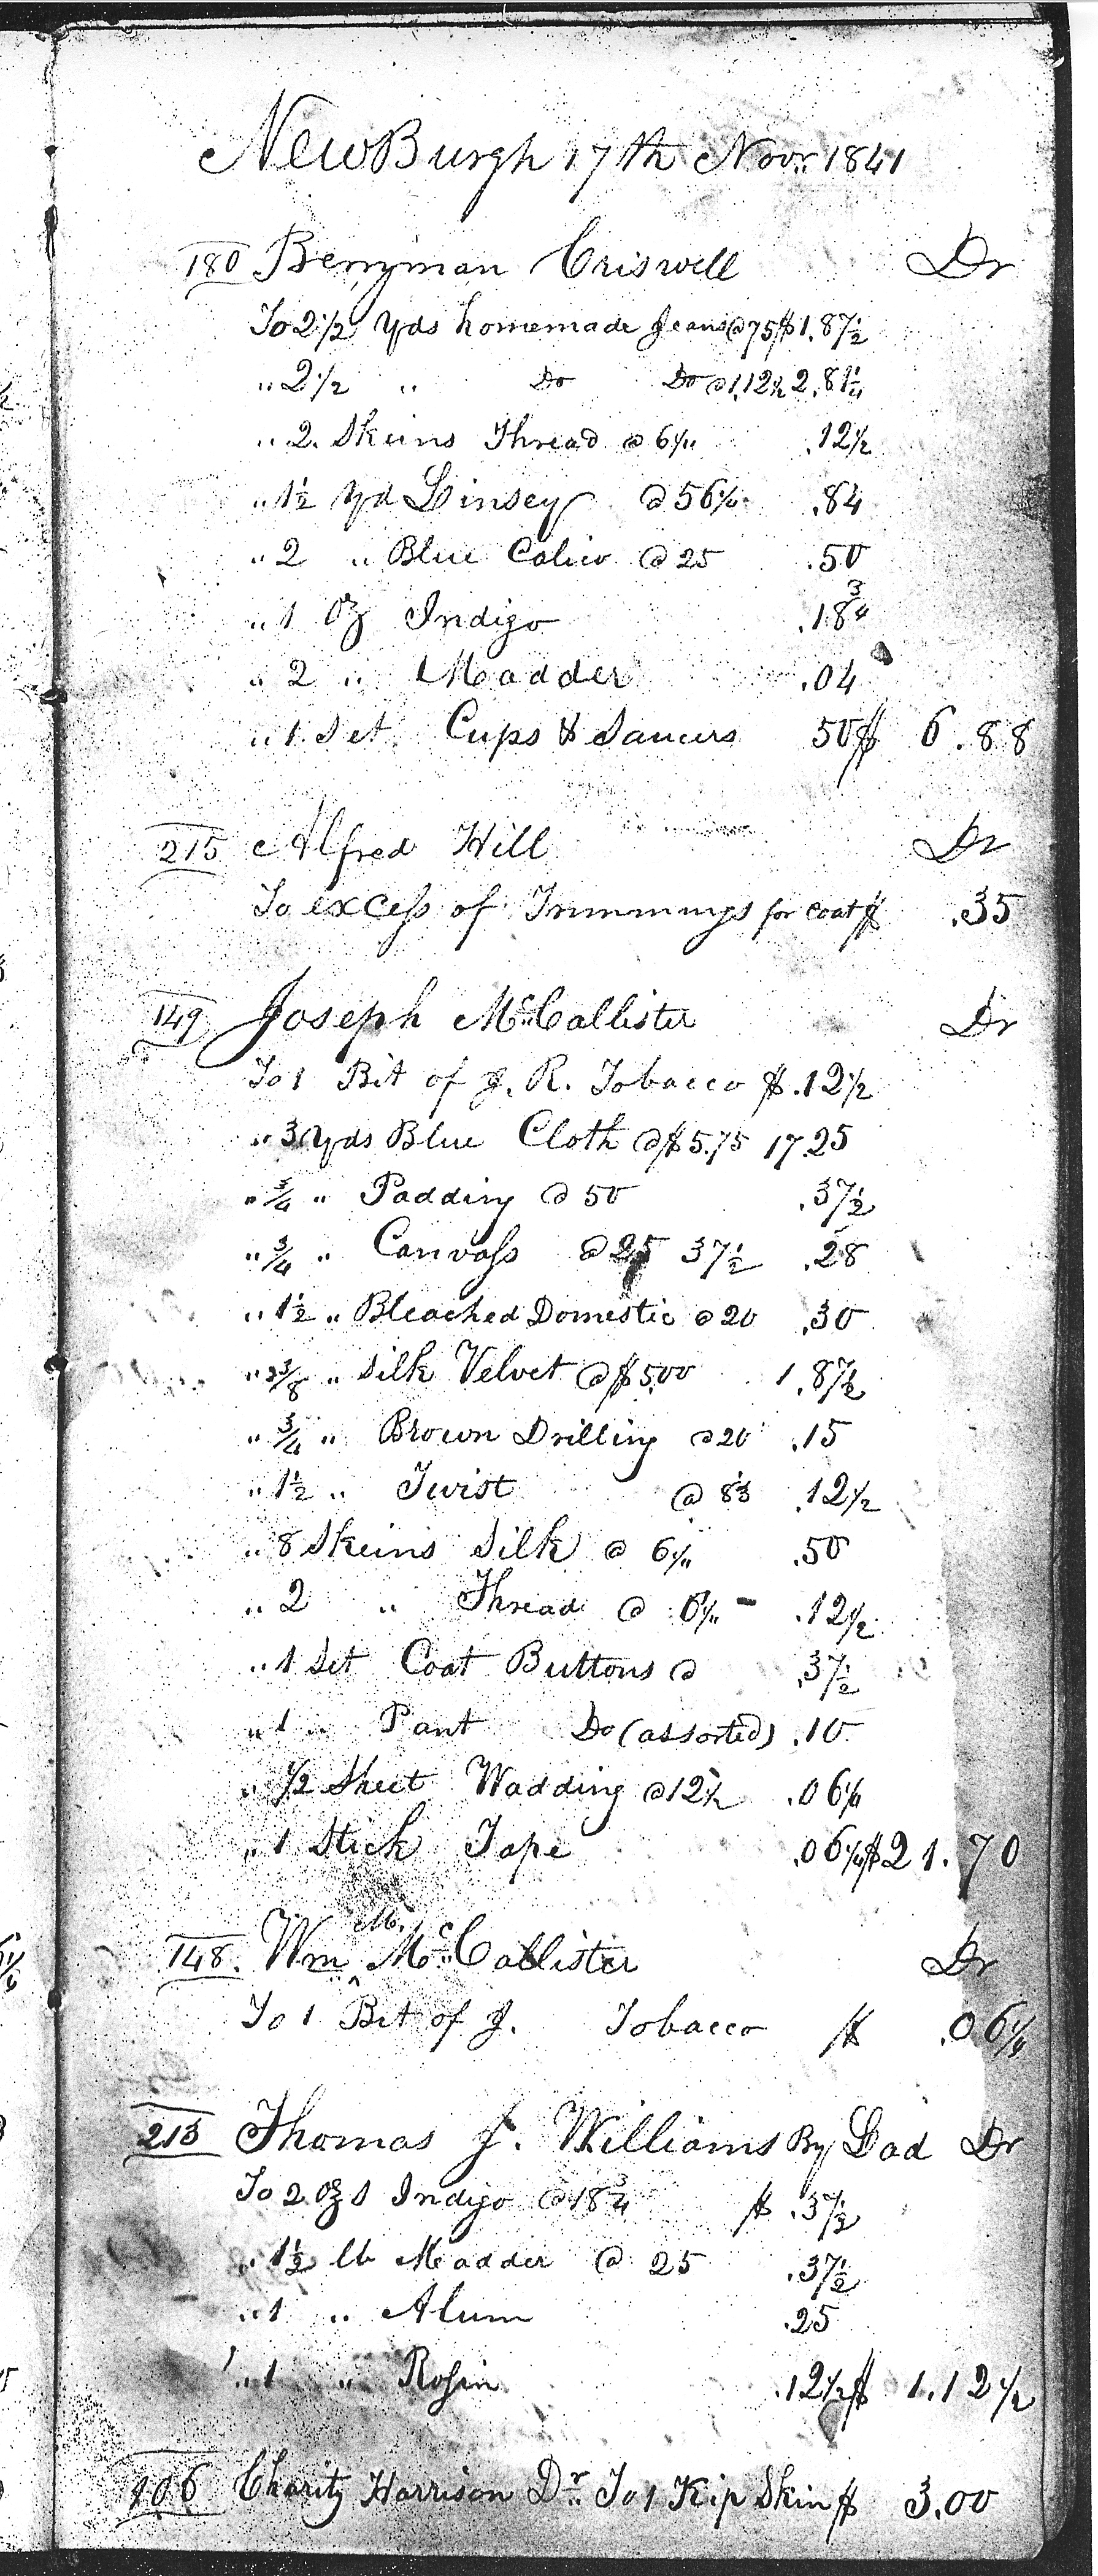 NewBurgh 17th Novr. 1841
180 Berryman Criswell Dr
To 2 1/2 Yds homemade Jeans @ 75 $1.87 1/2
" 2 1/2 " Do Do @ 1.12 1/2 2.81 1/4
" 2 Skeins Thread @ 6 1/4 .12 1/2
" 1 1/2 Yd Linsey @ 56 1/4 .84
" 2 " Blue Calico @ 25 .50
" 1 Oz Indigo .18 3/4
" 2 " Madder .04
" 1 Set Cups & Saucers 50 $ 6.88
215 Alfred Hill Dr
To excess of Trimmings for coat $ .35
149 Joseph McCallister Dr
To 1 Bit of J. R. Tobacco $ .12 1/2
" 3 Yds Blue Cloth @ $5.75 17.25
" 3/4 " Padding @ 50 .37 1/2
" 3/4 " Canvass @ 25 37 1/2 .28
" 1 1/2 " Bleached Domestic @ 20 .30
" 3/8 " Silk Velvet @ $5.00 1.87 1/2
" 3/4 " Brown Drilling @ 20 .15
" 1 1/2 " Twist @ 8 1/3 .12 1/2
" 8 Skeins Silk @ 6 1/4 .50
" 2 " Thread @ 6 1/4 - .12 1/2
" 1 Set Coat Buttons @ .37 1/2
" 1 " Pant Do (assorted) .10
" 1/2 Sheet Wadding @ 12 1/2 .06 1/4
" 1 Stick Tape .06 1/4 $21.70
148. Wm M. McCallister Dr
To 1 Bit of J. Tobacco $ .06 1/4
213 Thomas J. Williams By Lad Dr
To 2 ozs Indigo @ 18 3/4 $ .37 1/2
" 1 1/2 lb Madder @ 25 .37 1/2
" 1 " Alum .25
" 1 " Rosin .12 1/2 $ 1.12 1/2
106 Charity Harrison Dr. To 1 Kip Skin $ 3.00